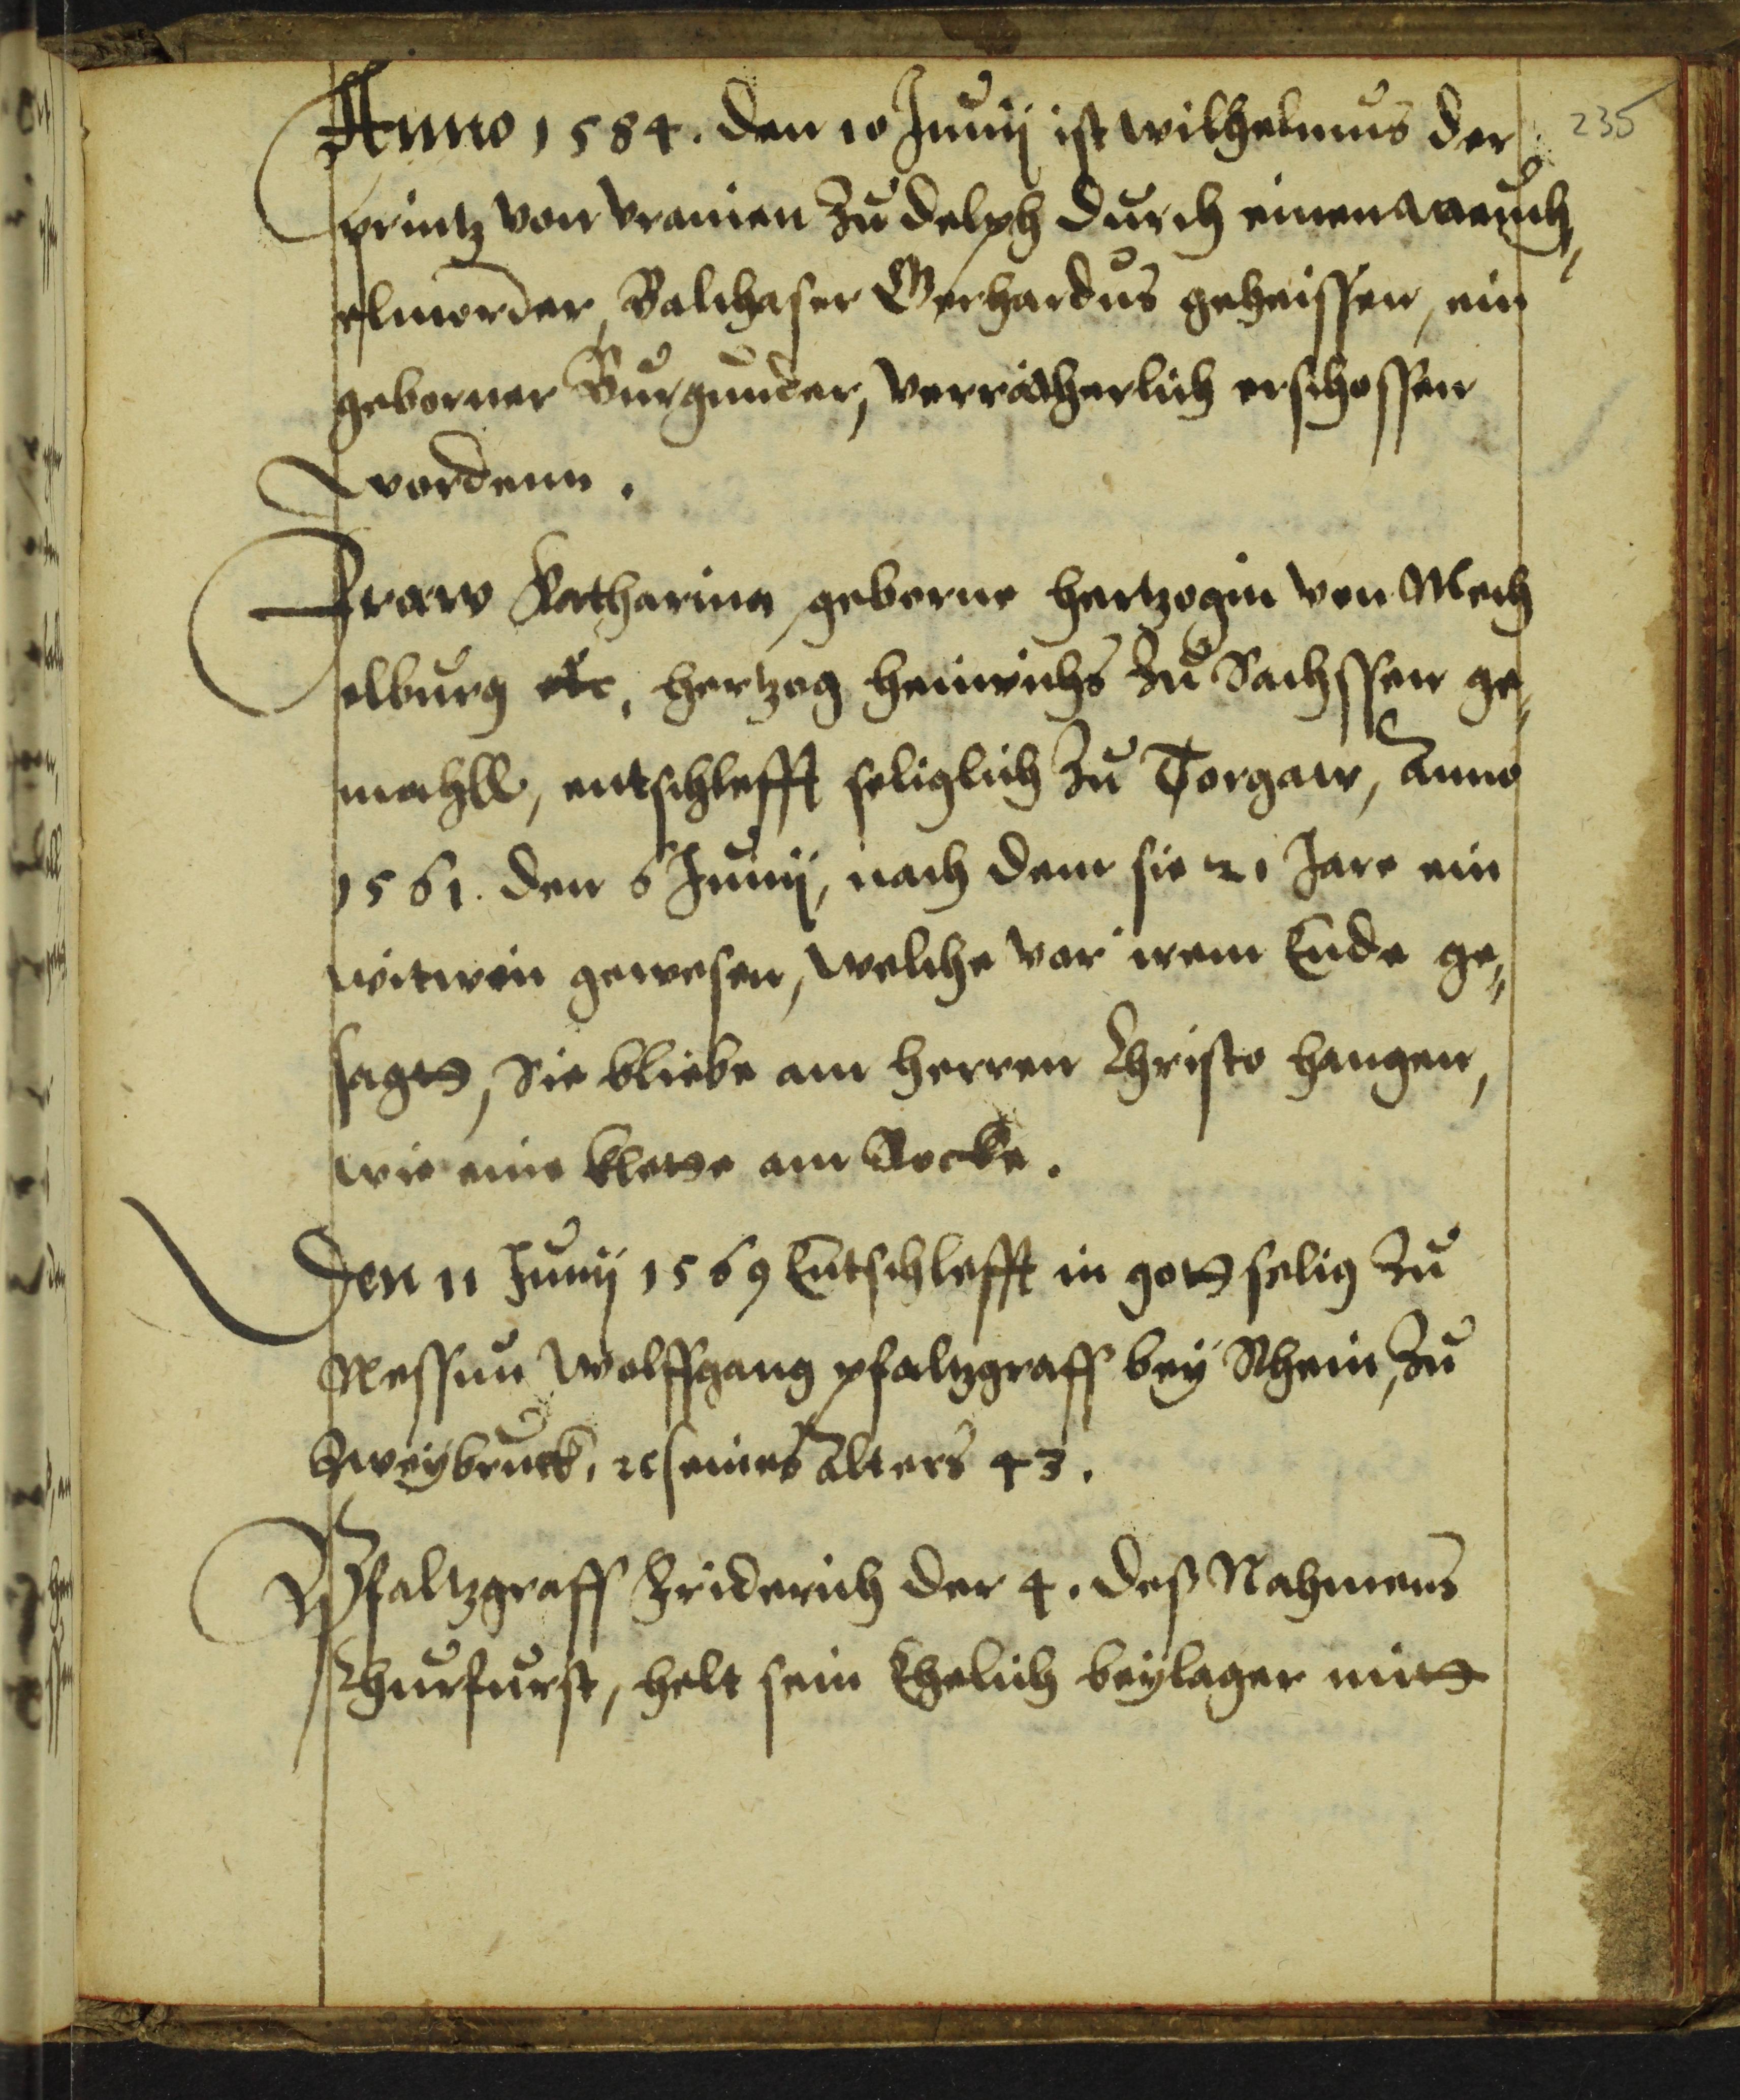 Anno 1584. den 10 Junij ist wilhelmus der
235
printz von Vranien zu delph durch einen Meuch,
elmorder, Balthaser Gerhardus geheissen, ein
geborner Burgunder, verrätherlich erschossen
wordenn.
Fraw Katharina, geborne hertzogin von Mech
elburg etc, hertzog heinrichs zu Sachssen ge,
mahll, entschlefft seliglich zu Torgaw, Anno
1561. den 6 Junij, nach dem sie 21 Jare ein
witwin gewesen, welche vor irem Ende ge,
sagtt, Sie bliebe am herren Christo hangen,
wie eine klette am Rocke.
Den 11 Junij 1569 Entschlefft in gott selig zu
Nessun Wolffgang pfaltzgraff bey Rhein, zu
Zweybruck, ꝛc seines Alters 43.
Pfaltzgraff Friderich der 4. deß Nahmens
Churfurst, helt sein Ehelich beylager mitt